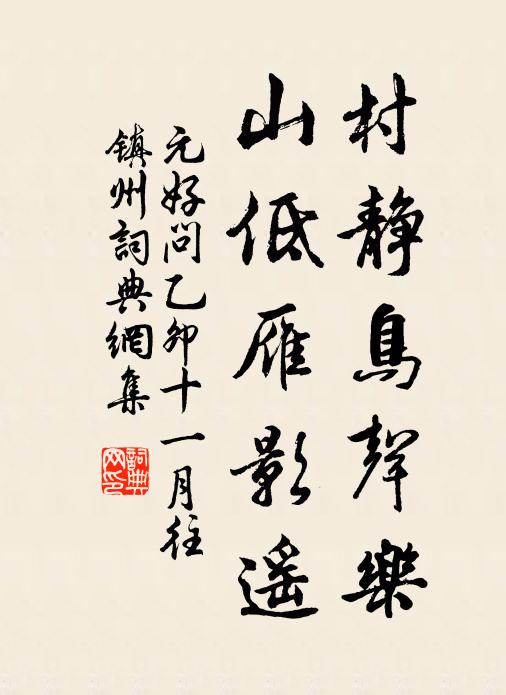 村静鳥聲樂
山低雁影遥
元好问乙卯十一月往
镇州詞典網集
詞典网印